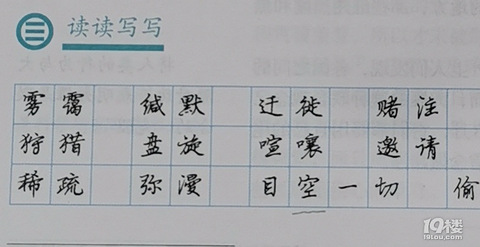 读读写写
雾霭 缄默 迁徙 赌注
狩猎 盘旋 喧嚷 邀请
稀疏 弥漫 目空一切 偷
19楼
19lou.com